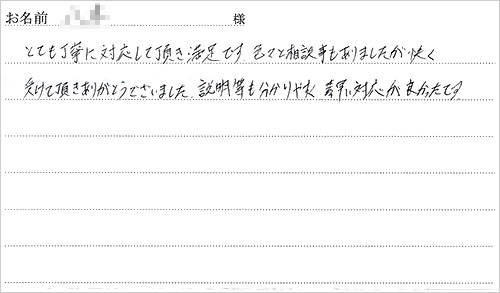 お名前 様
とても丁寧に対応して頂き満足です。色々と相談事もありましたが快く
受けて頂きありがとうございました。説明等も分かりやすく 対応が良かったです